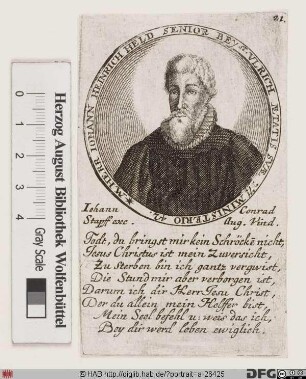 21.
M. HERR IOHANN HEINRICH HELD SENIOR BEY S. VLRICH ÆTATIS SVÆ 71. MINISTERIO 42.
Iohann Conrad
Stapff exc. Aug. Vind.
Todt, du bringst mir kein Schröcke nicht,
Jesus Christus ist mein Zuversicht,
Zu Sterben bin ich gantz vergwist,
Die Stund mir aber verborgen ist,
Darum ich dir Herr Jesu Christ,
Der du allein mein Helffer bist,
Mein Seel befehl u. weis das ich,
Bey dir werd leben ewiglich.
0 1 2 3 4
Gray Scale
Herzog August Bibliothek Wolfenbüttel
© HAB http://diglib.hab.de/?portrait=a-26425
DFG